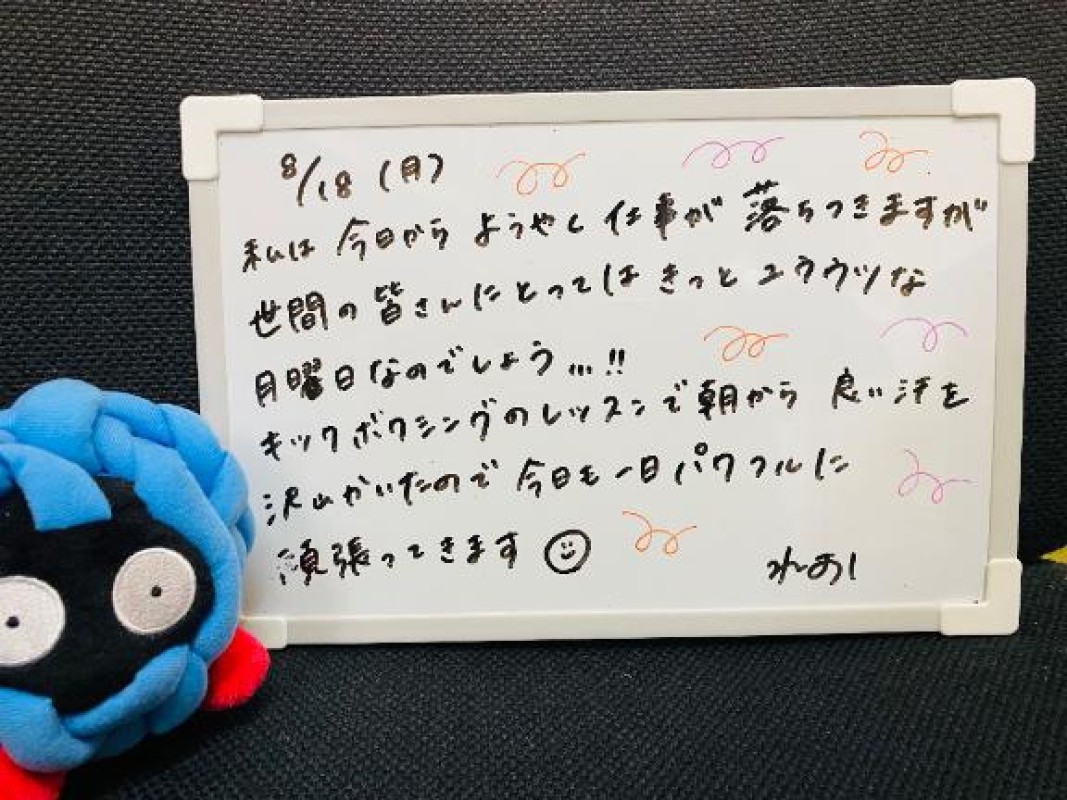 8/18 (月)
私は 今日から ようやく 仕事が 落ちつきますが
世間の 皆さんにとっては きっと ユウウツな
月曜日なのでしょう...!!
キックボクシングのレッスンで朝から 良い汗を
沢山かいたので 今日も一日パワフルに
頑張ってきます